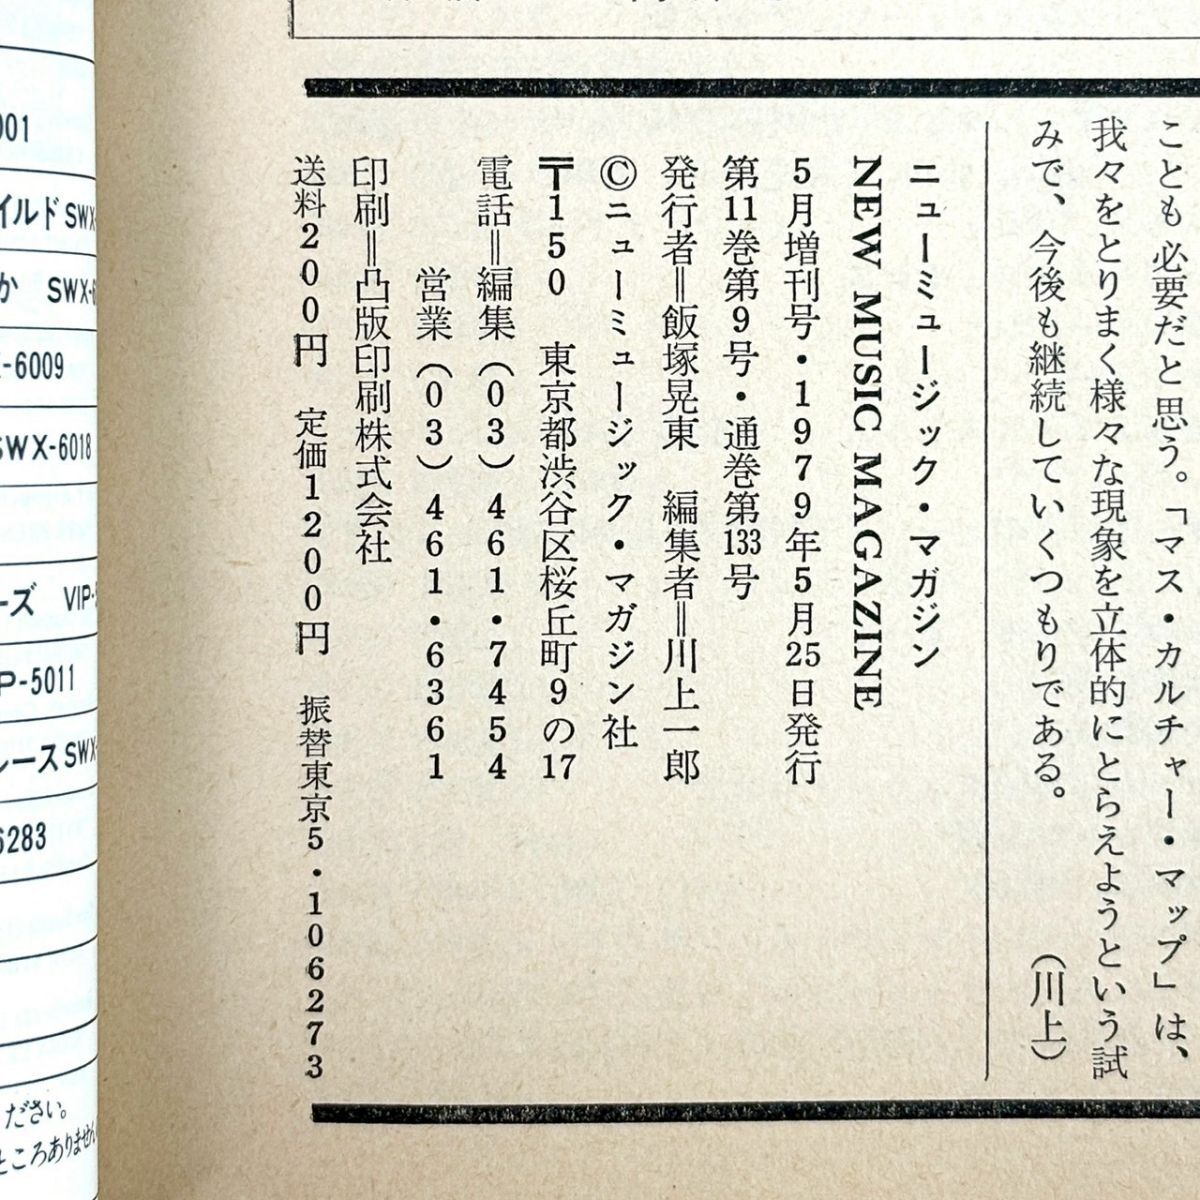 ことも必要だと思う。「マス・カルチャー・マップ」は、
我々をとりまく様々な現象を立体的にとらえようという試
みで、今後も継続していくつもりである。
（川上）
ニューミュージック・マガジン
NEW MUSIC MAGAZINE
5月増刊号・1979年5月25日発行
第11巻第9号・通巻第133号
発行者＝飯塚晃東 編集者＝川上一郎
©ニューミュージック・マガジン社
〒150 東京都渋谷区桜丘町9の17
電話＝編集（03）461・7454
営業（03）461・6361
印刷＝凸版印刷株式会社
送料200円 定価1200円 振替東京5・106273
001
イルドSWX-
か SWX-6
-6009
SWX-6018
ーズ VIP-5
P-5011
レースSWX-
6283
ください。
ところありません